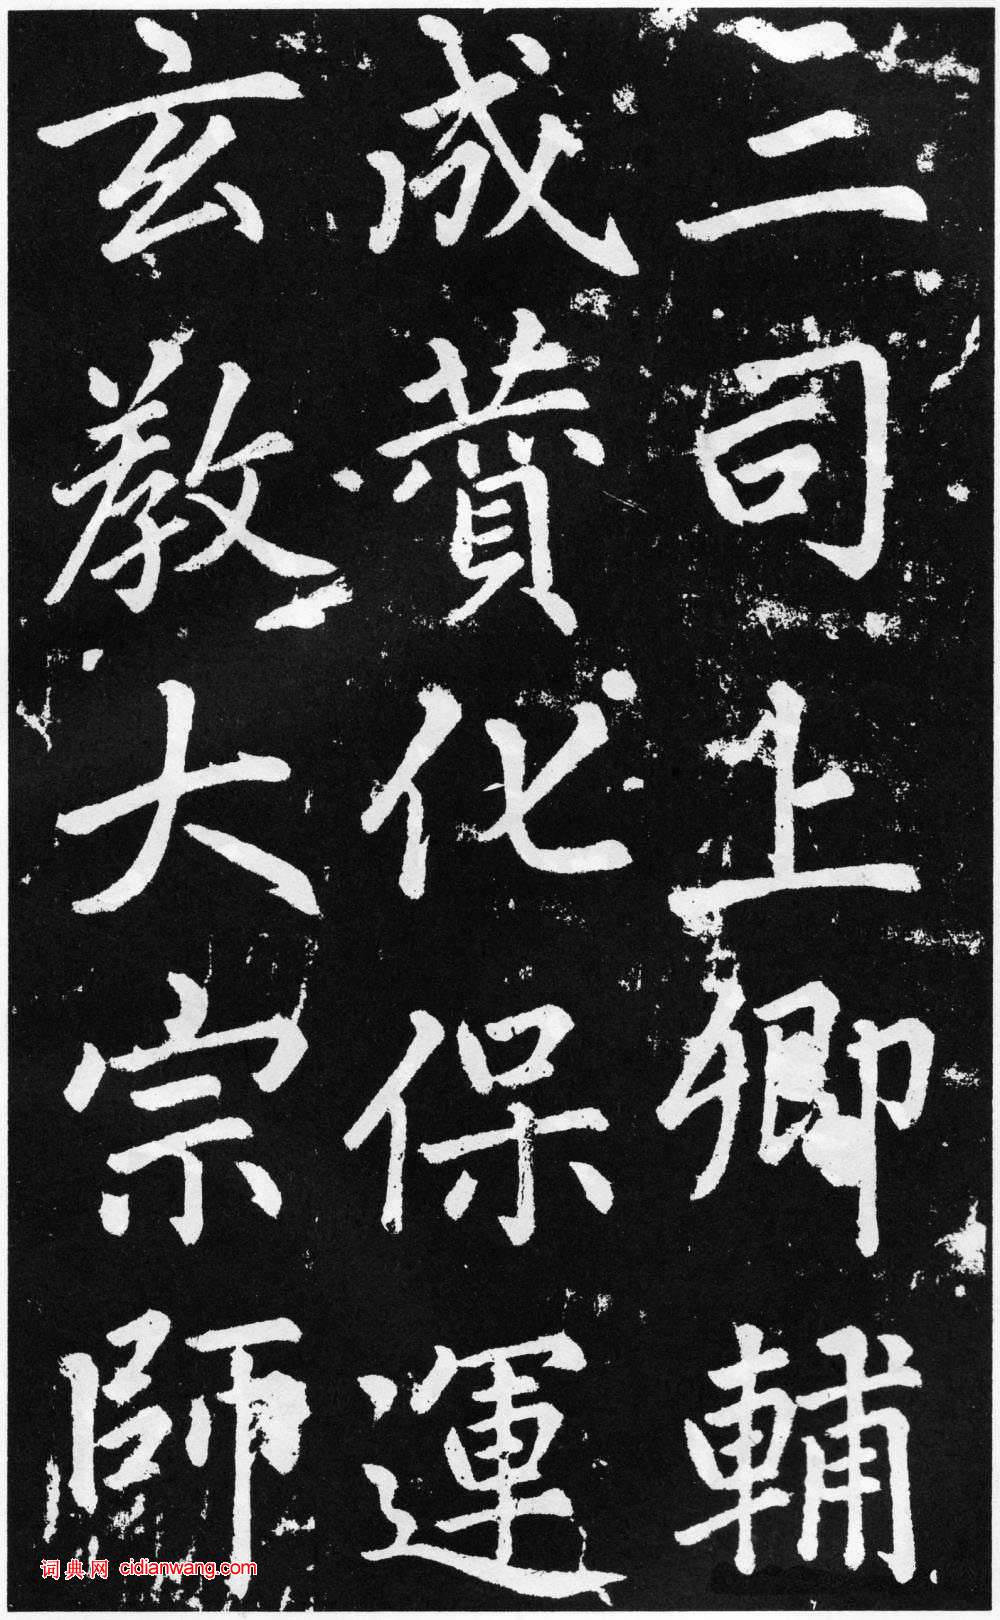 三司上卿輔
成賛化保運
玄教大宗師
词典网 cidianwang.com